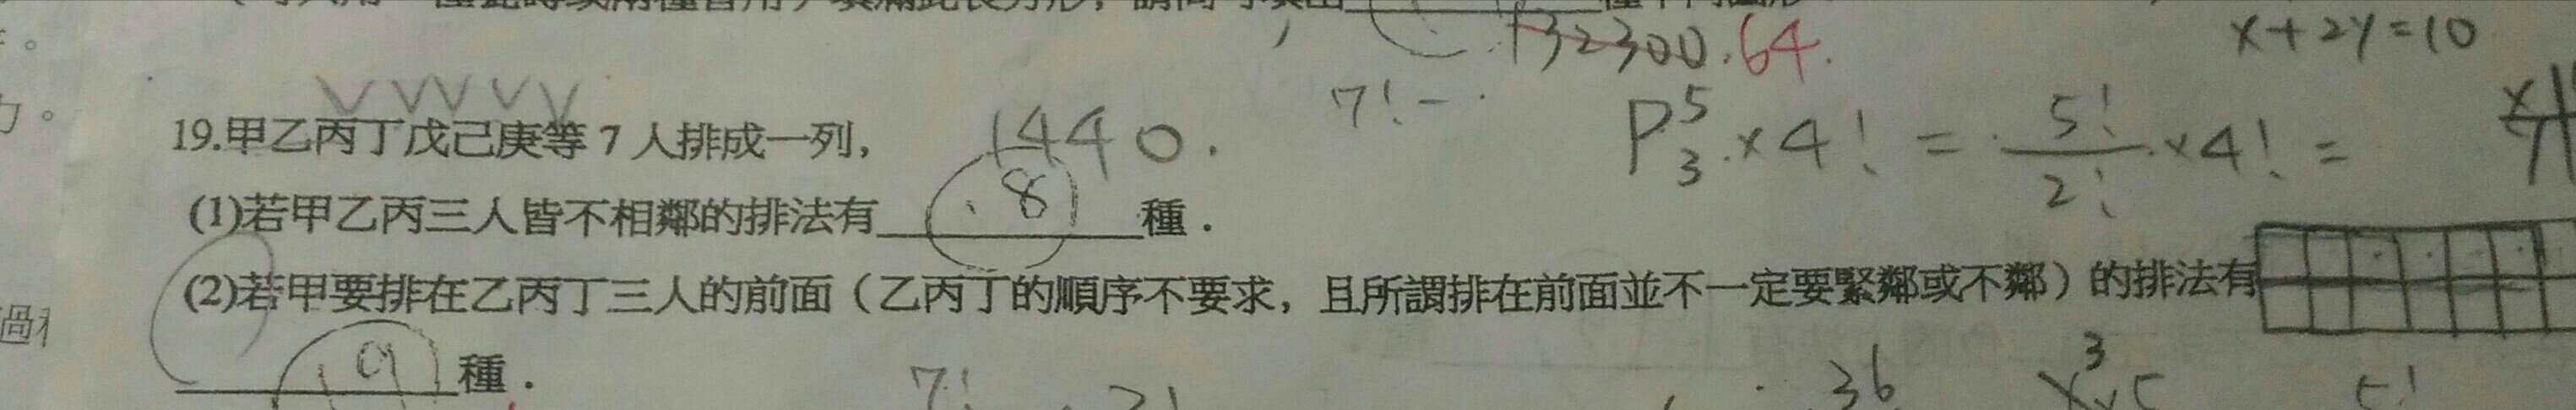 132300.64.
x+2y=10
19.甲乙丙丁戊己庚等 7 人排成一列,
1440.
7!-
P⁵₃×4! = 5!/2! ×4! =
(1)若甲乙丙三人皆不相鄰的排法有 18 種.
(2)若甲要排在乙丙丁三人的前面（乙丙丁的順序不要求, 且所謂排在前面並不一定要緊鄰或不鄰）的排法有
19 種.
7!
36
5!